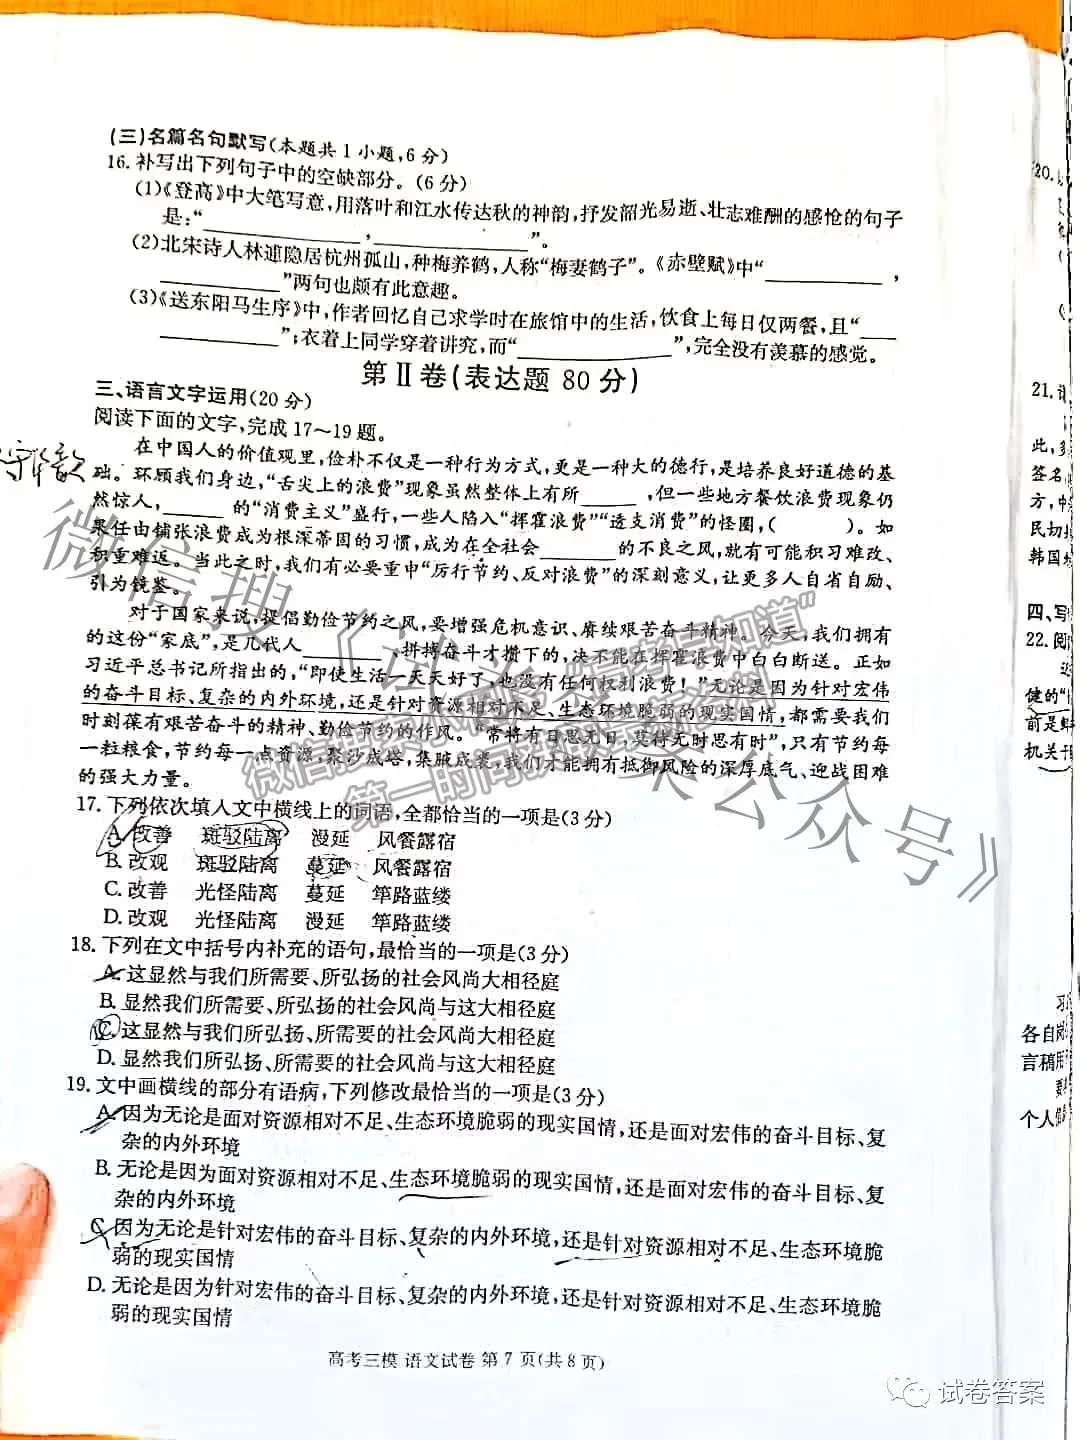 (三)名篇名句默写(本题共1小题,6分)
16.补写出下列句子中的空缺部分。(6分)
(1)《登高》中大笔写意,用落叶和江水传达秋的神韵,抒发韶光易逝、壮志难酬的感怆的句子
是:“____________,____________”。
(2)北宋诗人林逋隐居杭州孤山,种梅养鹤,人称“梅妻鹤子”。《赤壁赋》中“____________,
____________”两句也颇有此意趣。
(3)《送东阳马生序》中,作者回忆自己求学时在旅馆中的生活,饮食上每日仅两餐,且“____
____________”;衣着上同学穿着讲究,而“____________”,完全没有羡慕的感觉。
第Ⅱ卷(表达题 80分)
三、语言文字运用(20分)
阅读下面的文字,完成17～19题。
在中国人的价值观里,俭朴不仅是一种行为方式,更是一种大的德行,是培养良好道德的基
础。环顾我们身边,“舌尖上的浪费”现象虽然整体上有所______,但一些地方餐饮浪费现象仍
然惊人,______的“消费主义”盛行,一些人陷入“挥霍浪费”“透支消费”的怪圈,(      )。如
果任由铺张浪费成为根深蒂固的习惯,成为在全社会______的不良之风,就有可能积习难改、
积重难返。当此之时,我们有必要重申“厉行节约、反对浪费”的深刻意义,让更多人自省自励、
引为镜鉴。
对于国家来说,提倡勤俭节约之风,要增强危机意识、赓续艰苦奋斗精神。今天,我们拥有
的这份“家底”,是几代人________、拼搏奋斗才攒下的,决不能在挥霍浪费中白白断送。正如
习近平总书记所指出的,“即使生活一天天好了,也没有任何权利浪费!”无论是因为针对宏伟
的奋斗目标、复杂的内外环境,还是针对资源相对不足、生态环境脆弱的现实国情,都需要我们
时刻葆有艰苦奋斗的精神、勤俭节约的作风。“常将有日思无日,莫待无时思有时”,只有节约每
一粒粮食,节约每一点资源,聚沙成塔,集腋成裘,我们才能拥有抵御风险的深厚底气、迎战困难
的强大力量。
17.下列依次填入文中横线上的词语,全都恰当的一项是(3分)
A.改善 斑驳陆离 漫延 风餐露宿
B.改观 斑驳陆离 蔓延 风餐露宿
C.改善 光怪陆离 蔓延 筚路蓝缕
D.改观 光怪陆离 漫延 筚路蓝缕
18.下列在文中括号内补充的语句,最恰当的一项是(3分)
A.这显然与我们所需要、所弘扬的社会风尚大相径庭
B.显然我们所需要、所弘扬的社会风尚与这大相径庭
C.这显然与我们所弘扬、所需要的社会风尚大相径庭
D.显然我们所弘扬、所需要的社会风尚与这大相径庭
19.文中画横线的部分有语病,下列修改最恰当的一项是(3分)
A.因为无论是面对资源相对不足、生态环境脆弱的现实国情,还是面对宏伟的奋斗目标、复
杂的内外环境
B.无论是因为面对资源相对不足、生态环境脆弱的现实国情,还是面对宏伟的奋斗目标、复
杂的内外环境
C.因为无论是针对宏伟的奋斗目标、复杂的内外环境,还是针对资源相对不足、生态环境脆
弱的现实国情
D.无论是因为针对宏伟的奋斗目标、复杂的内外环境,还是针对资源相对不足、生态环境脆
弱的现实国情
高考三模 语文试卷 第7页(共8页)
20.
21.
此,多
签名,
方,中
民切
韩国
四、写
22.阅
健的“
前是
机关
习
各自
言稿用
要
个人
微信搜《试卷答案公众号》
第一时间获取
试卷答案